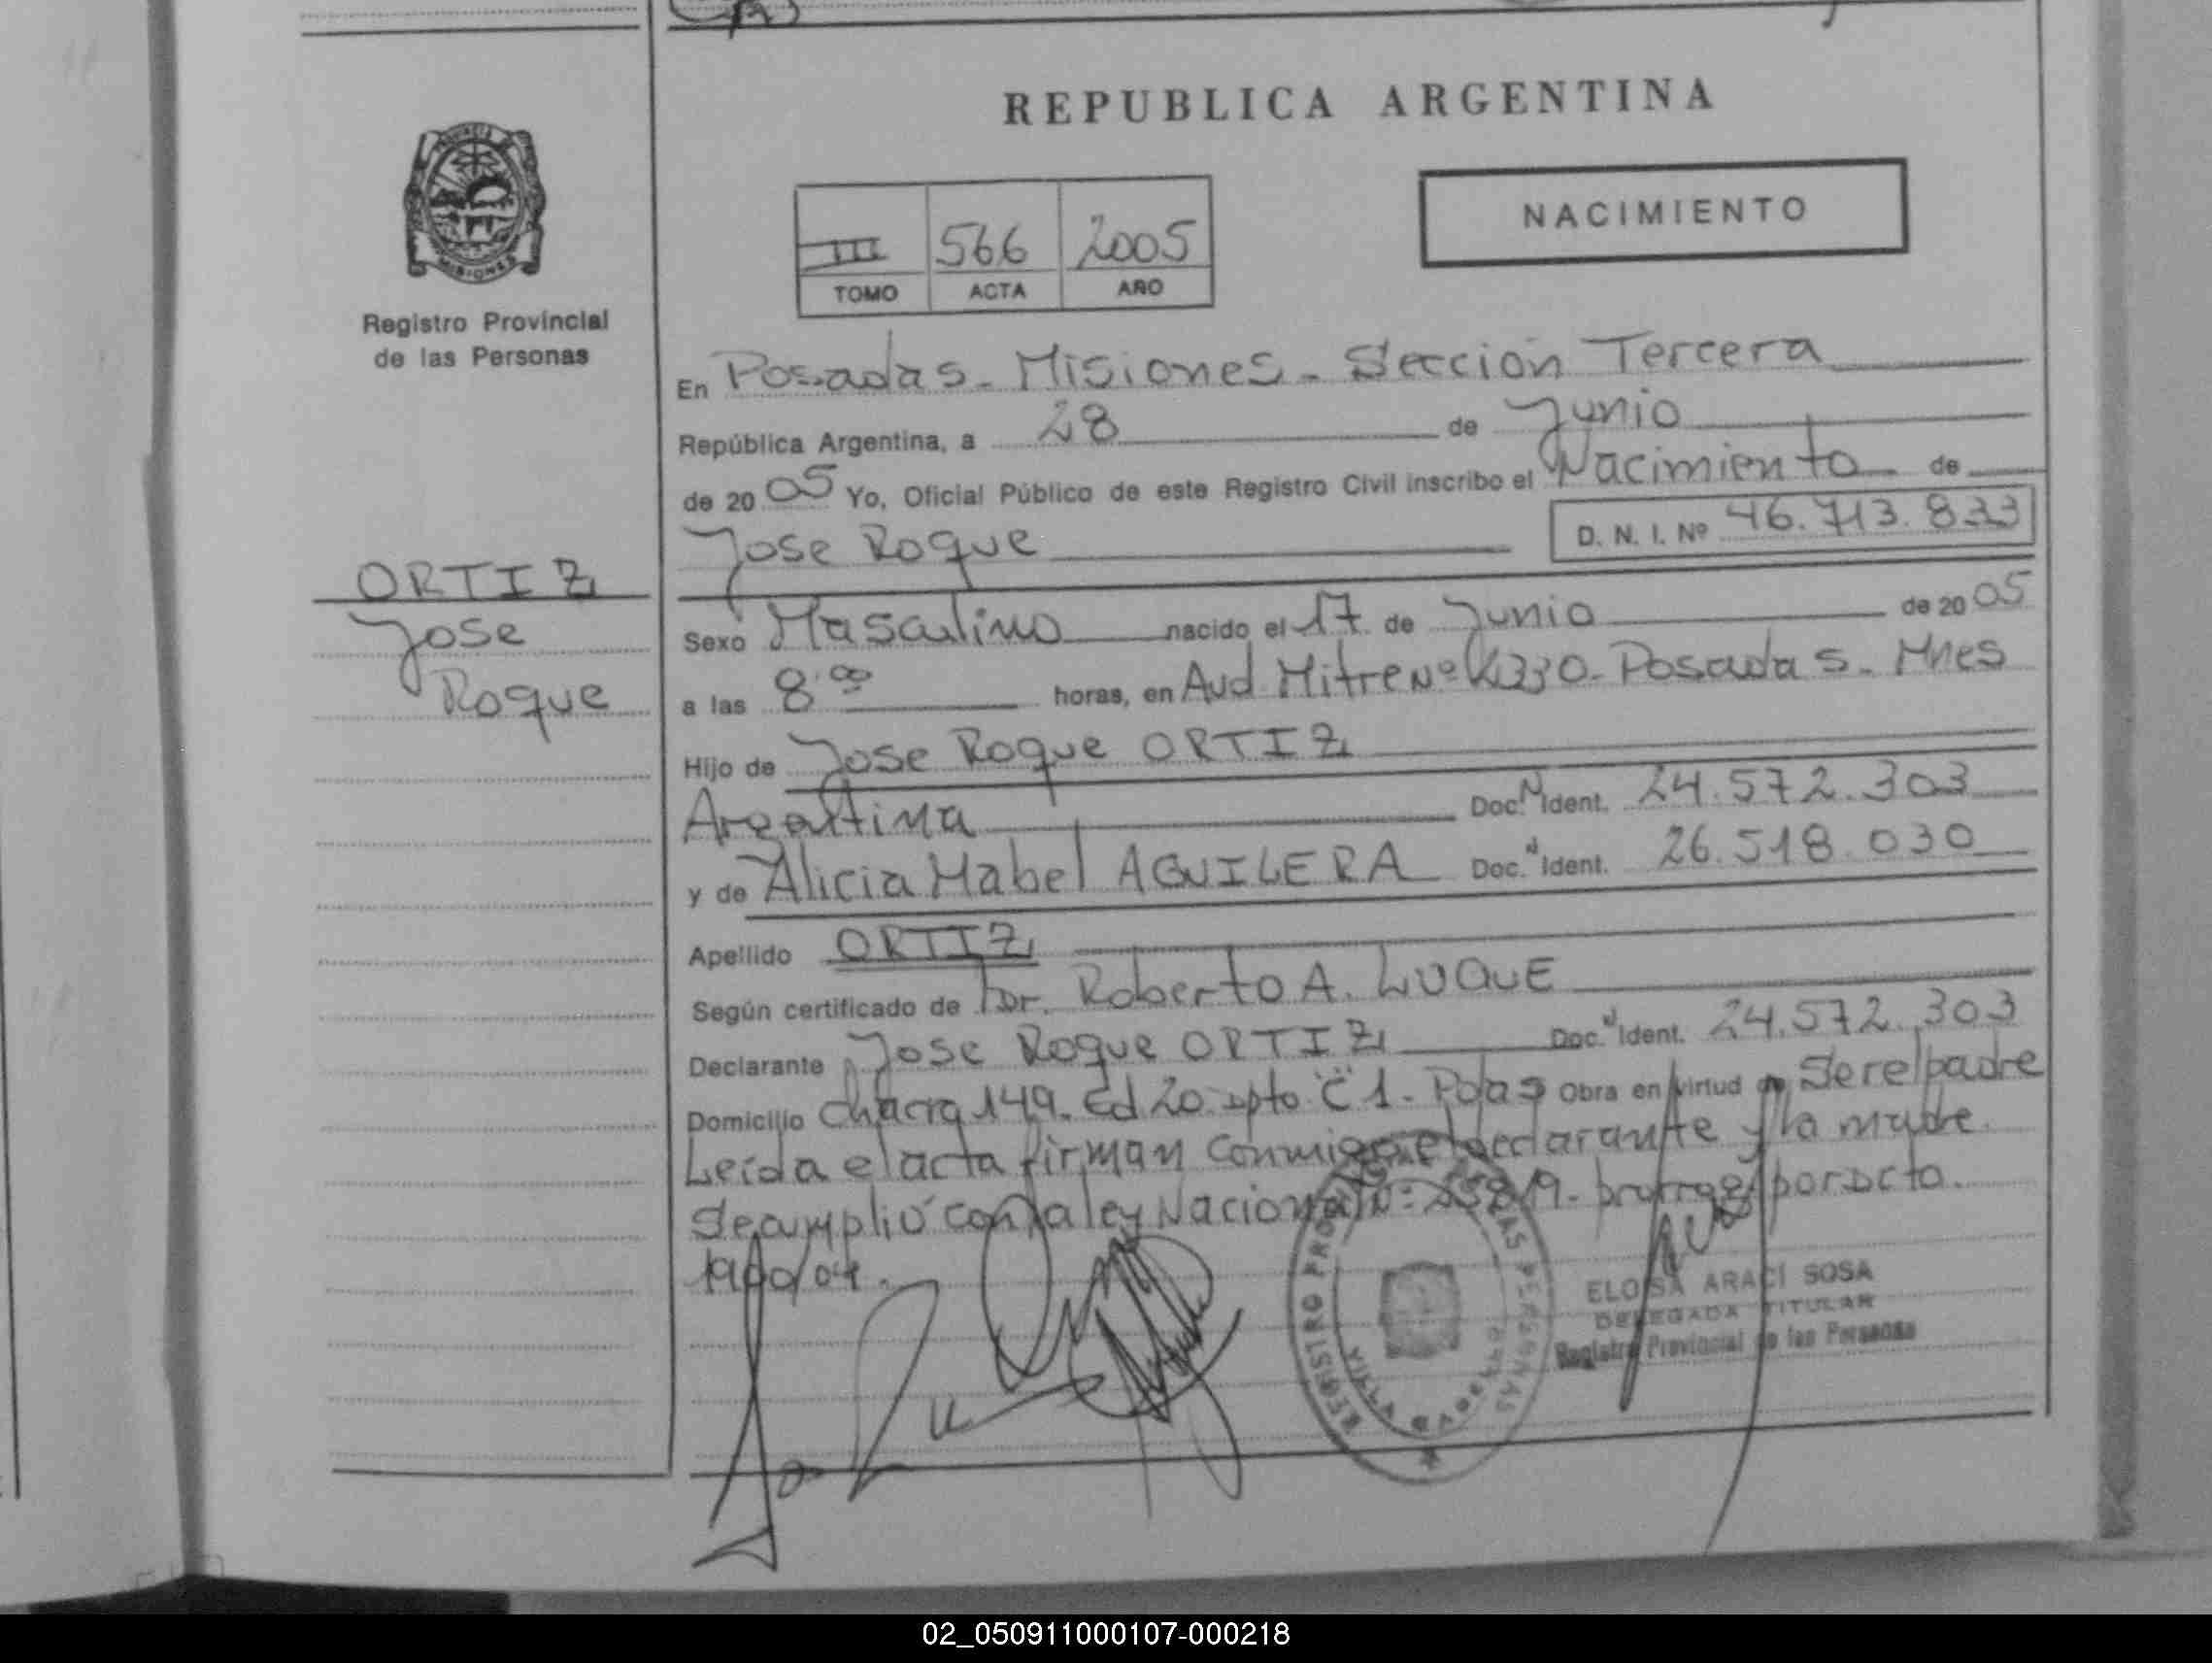 REPUBLICA ARGENTINA
PROVINCIA
MISIONES
Registro Provincial
de las Personas
ORTIZ
Jose
Roque
III 566 2005
TOMO ACTA AÑO
NACIMIENTO
En Posadas - Misiones - Sección Tercera
República Argentina, a 28 de Junio
de 2005 Yo, Oficial Público de este Registro Civil inscribo el Nacimiento de
Jose Roque D. N. I. Nº 46.713.833
Sexo Masculino nacido el 17 de Junio de 2005
a las 8:00 horas, en Avd Mitre Nº 4330 - Posadas - Mnes
Hijo de Jose Roque ORTIZ
Argentina Doc. N Ident. 24.572.303
y de Alicia Mabel AGUILERA Doc. N Ident. 26.518.030
Apellido ORTIZ
Según certificado de Dr. Roberto A. LUQUE
Declarante Jose Roque ORTIZ Doc. N Ident. 24.572.303
Domicilio Chacra 149. Ed 20 Dpto "C" 1 - Pdas Obra en virtud de Ser el padre
Leída el acta firman conmigo el declarante y la madre.
Se cumplió con la ley Nacional Nº: 25819 - prorrog por Dcto.
1900/04.
REGISTRO PROV DE LAS PERSONAS
VILLA CABELLO
ELOISA ARACI SOSA
DELEGADA TITULAR
Registro Provincial de las Personas
02_050911000107-000218